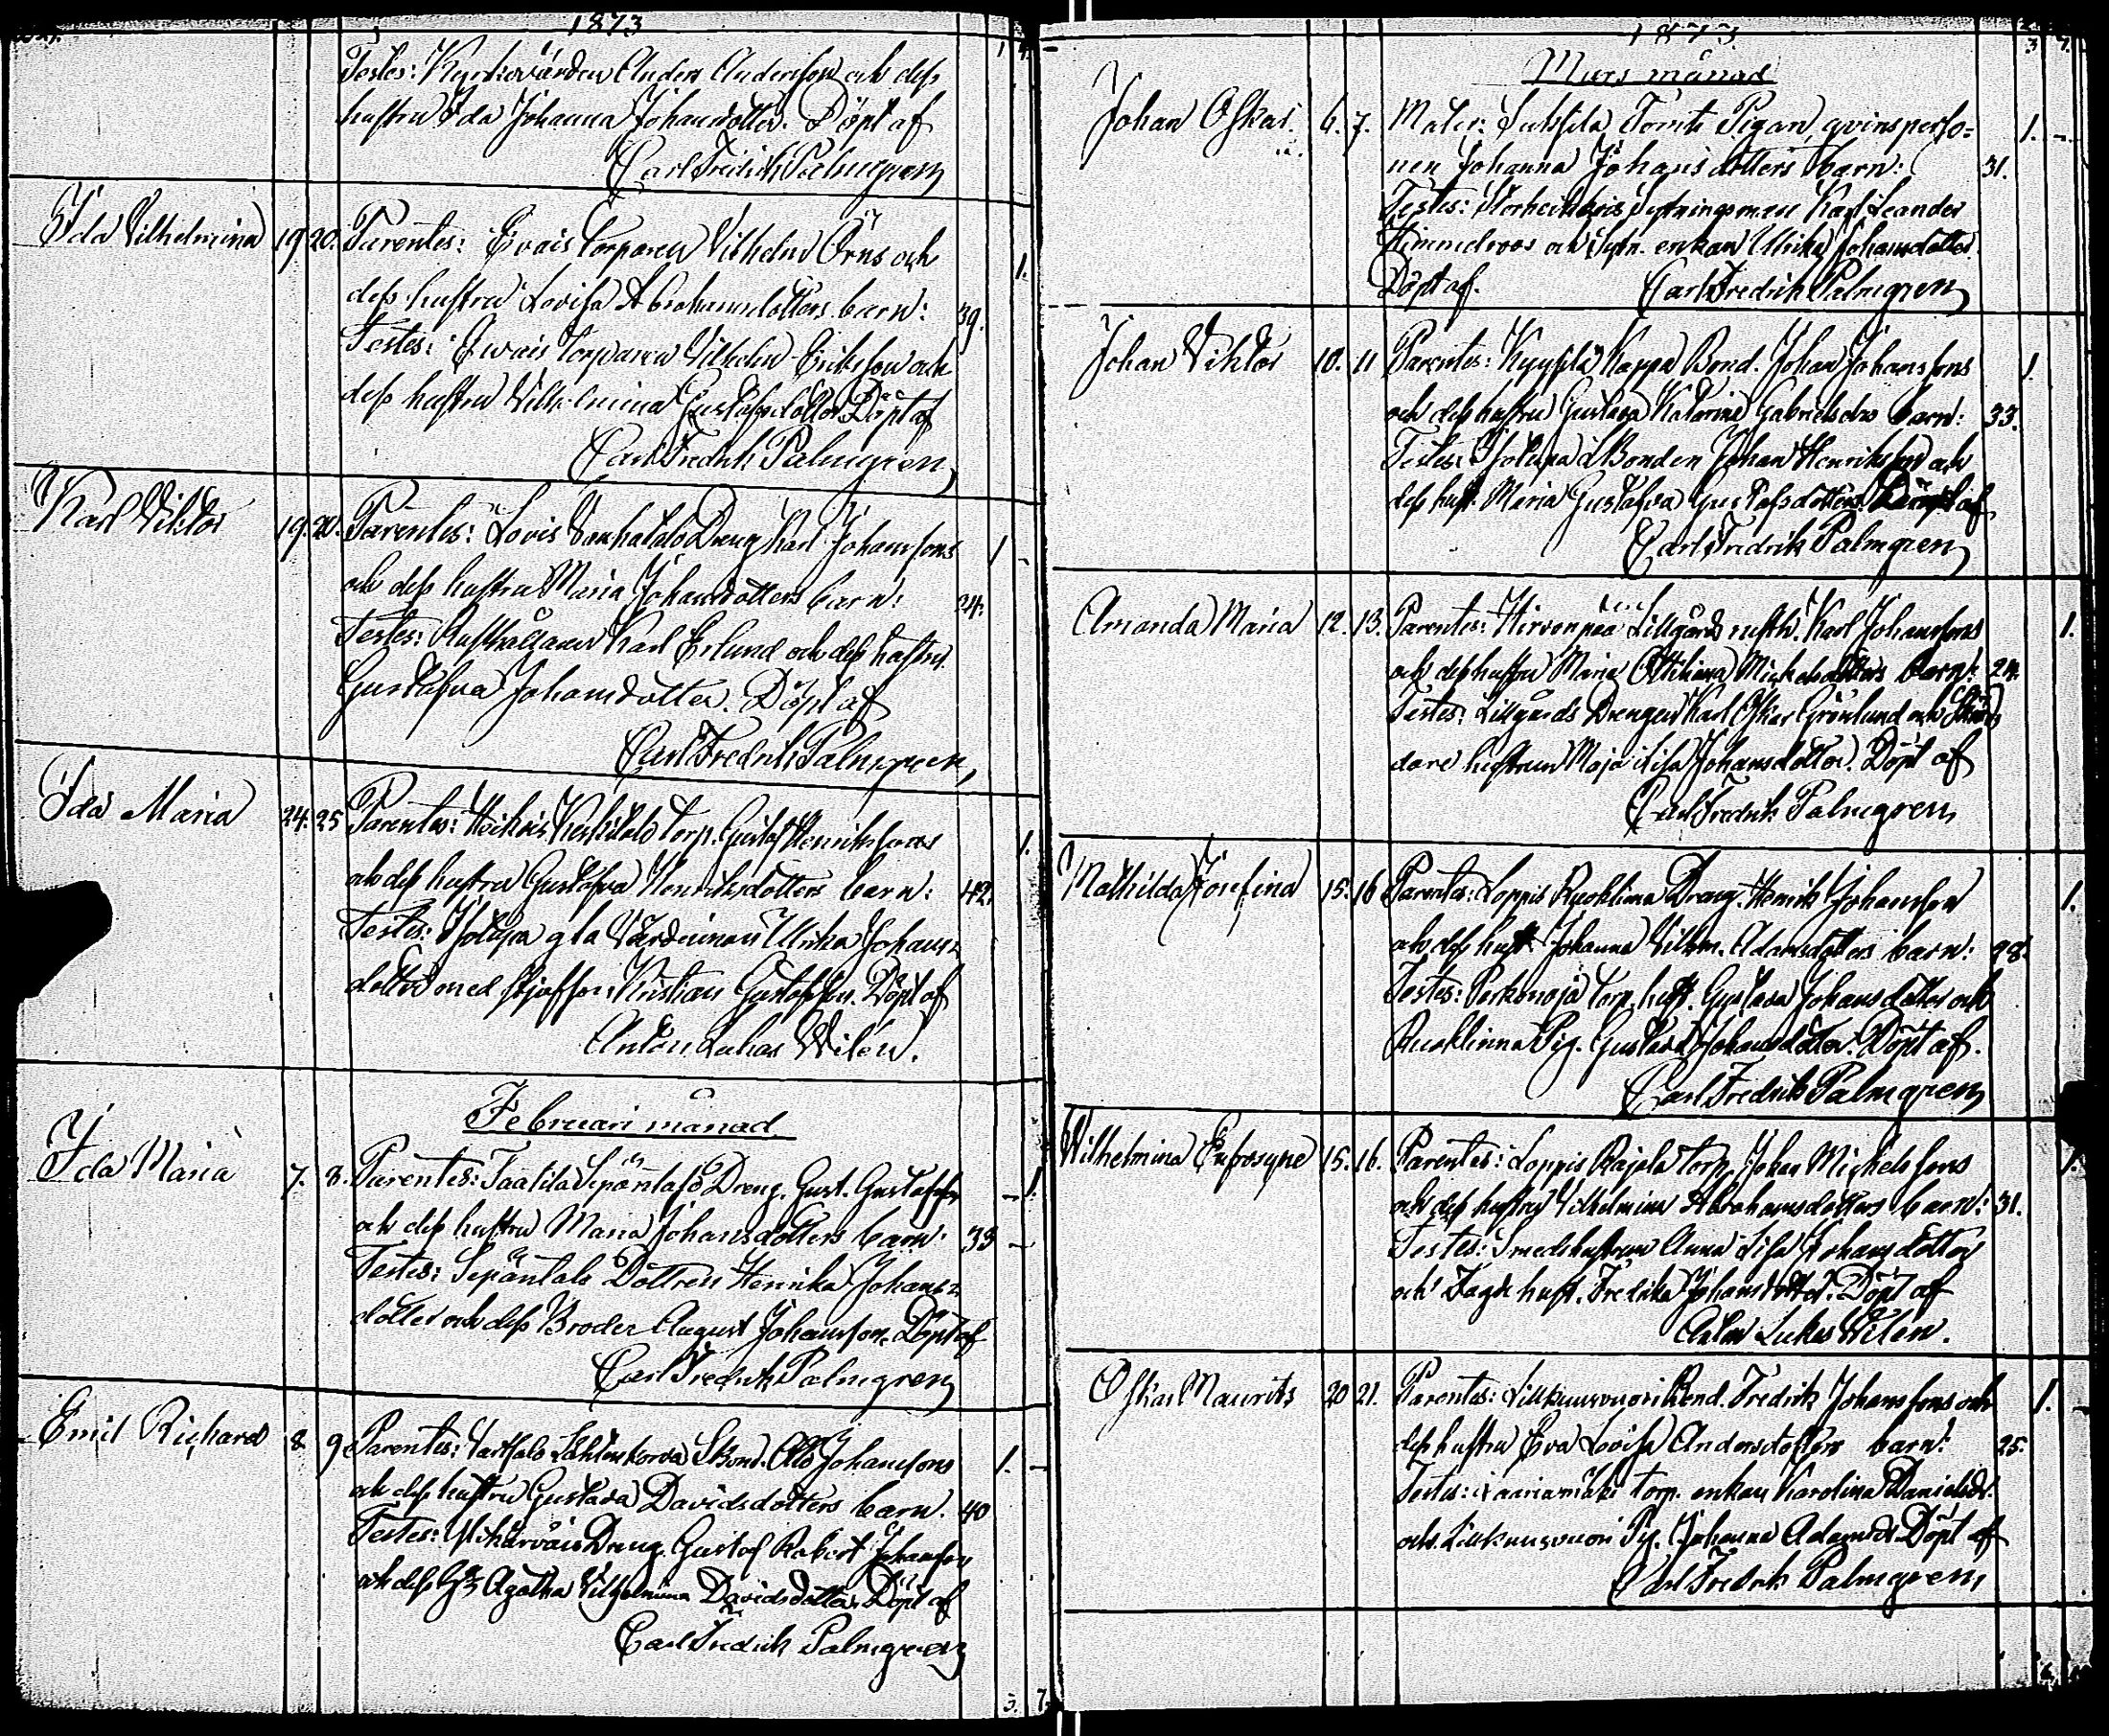 1873
Testes: Kyrkovärden Anders Andersson och dess
hustru Ida Johanna Johansdotter. Döpt af
Carl Fredrik Palmgren
Ida Vilhelmina 19 20. Parentes: Torparen Vilhelm Örns och 1.
dess hustru Lovisa Abrahamsdotters barn: 39.
Testes: torparen Vilhelm Eriksson och
dess hustru Vilhelmina Gustafsdotter Döpt af
Carl Fredrik Palmgren
Karl Viktor 19. 20. Parentes: Lovis Dreng Karl Johanssons 1 -
och dess hustru Maria Johansdotters barn: 24.
Testes: Rusthållaren Karl Erlund och dess hustru
Gustafva Johansdotter. Döpt af
Carl Fredrik Palmgren
Ida Maria 24. 25 Parentes: Torp. Gustaf Henrikssons 1.
och dess hustru Gustafva Henriksdotters barn: 42.
Testes: gla Värdinnan Ulrika Johans=
dotter med Kristian Gustafsson. Döpt af
Anton Lukas Wilén.
Februari månad
Ida Maria 7. 8. Parentes: Dreng. Gust. Gustafss. - 1.
och dess hustru Maria Johansdotters barn. 33 -
Testes: Dottren Henrika Johans=
dotter och dess Broder August Johansson. Döpt af
Carl Fredrik Palmgren
Emil Richard 8. 9. Parentes: Johanssons 1. -
och dess hustru Gustava Davidsdotters barn. 40
Testes: Dreng. Gustaf Robert Johansson
och dess Agatha Vilhelmina Davidsdotter. Döpt af
Carl Fredrik Palmgren
3. 7.
1873
Mars månad
Johan Oskar. 6. 7. Mater: Pigan qvinsperso= 1. -
nen Johanna Johansdotters barn: 31.
Testes: Karl Leander
Himmelroos och enkan Ulrika Johansdotter.
Döpt af. Carl Fredrik Palmgren
Johan Viktor 10. 11 Parentes: Bond. Johan Johanssons 1.
och dess hustru Gustava Katarina Gabrielsdrs barn: 33.
Testes: Bonden Johan Henriksson och
dess hust. Maria Gustafva Gustafsdotter. Döpt af
Carl Fredrik Palmgren
Amanda Maria 12. 13. Parentes: Hirvenpää Lillgårds rusth. Karl Johanssons 1.
och dess hustru Maria Mickelsdotters barn: 24.
Testes: Lillgårds Drengen Karl Oskar Grönlund och
dare hustrun Maja Lisa Johansdotter. Döpt af
Carl Fredrik Palmgren
Mathilda Josefina 15. 16 Parentes: Loppis Dreng. Henrik Johansson 1.
och dess hust. Johanna Vilhm. Adamsdotters barn: 28.
Testes: Torp. hust. Gustava Johansdotter och
Pig. Gustava Johansdotter. Döpt af.
Carl Fredrik Palmgren
Wilhelmina Eufrosyne 15. 16. Parentes: Loppis Rajala Torp. Johan Michelssons 1.
och dess hustru Vilhelmina Abrahamsdotters barn: 31.
Testes: Smedshustrun Anna Lisa Johansdotter
och hust. Fredrika Johansdotter. Döpt af
Anton Lukas Wilén.
Oskar Maurits 20 21. Parentes: Bond. Fredrik Johanssons och 1. -
dess hustru Eva Lovisa Andersdotters barn: 25.
Testes: torp. enkan Karolina Danielsdr.
och Pig. Johanna Adamsdr. Döpt af
Carl Fredrik Palmgren